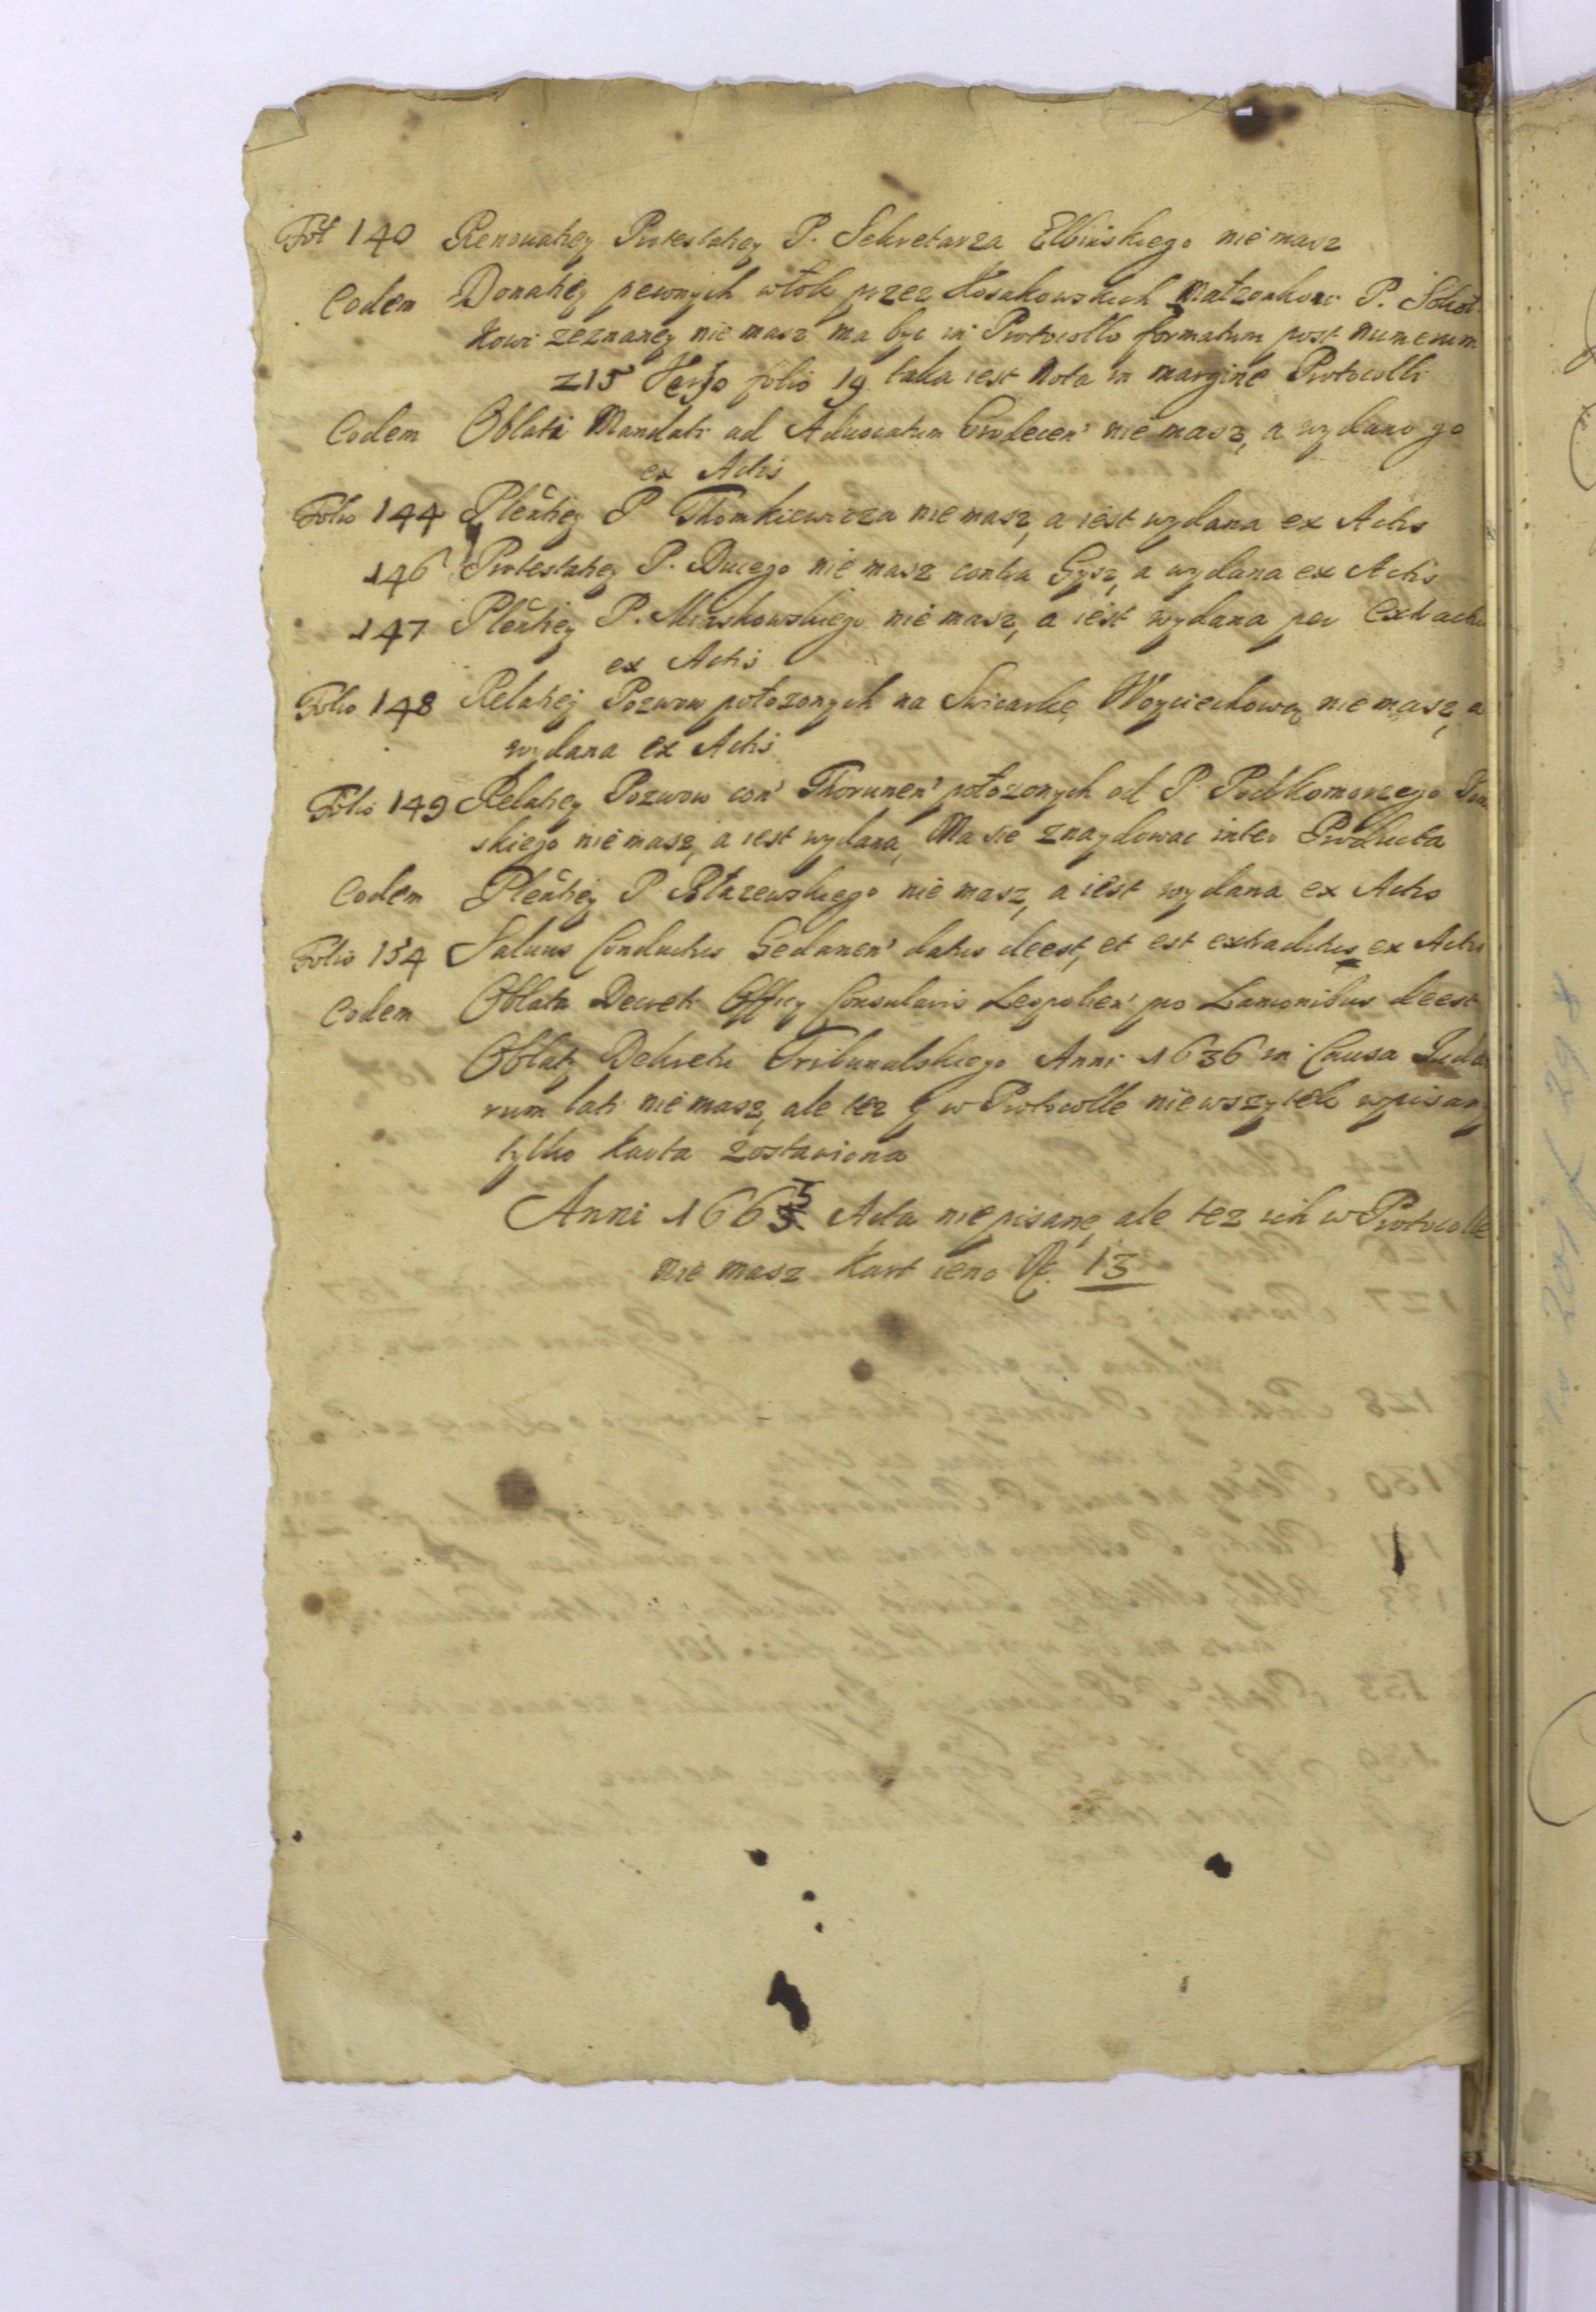 Fol 140 Renouatiey Protestatiey P. Sekretarza Elbinskiego nie masz
Eodem Donatiey pewnych włók przez Kosakowskich Małzonkow P.
kowi zeznaney nie masz ma byc in Protocollo formatum post numerum
215 Verso folio 19 taka iest Nota in margine Protocolli
Eodem Oblata Mandati ad Aduocatum nie masz, a wydano go
ex Actis
Folio 144 Pleñtiey P Thomkiewicza nie masz, a iest wydana ex Actis
146 Protestatiey P. Ducego nie masz contra a wydana ex Actis
147 Pleñtiey P. Minskowskiego nie masz, a iest wydana per
ex Actis
Folio 148 Relatiey Pozwow położonych na Woyciechową nie masz, a
wydana ex Actis
Folio 149 Relatiey Pozwow con' Thorunen' położonych od P. Podkomorzego
skiego nie masz, a iest wydana, Ma sie znaydowac inter Producta
Eodem Pleñtiey P. nie masz, a iest wydana ex Actis
Folio 154 Saluus Conductus Gedanen' datus deest, et est extraditus ex Actis
Eodem Oblata Decreti Officy Consularis Leopolien' pro Lanionibus deest
Oblaty Dekretu Tribunalskiego Anni 1636 in Causa
rum lati nie masz, ale tez y w Protocolle nie wszytek wpisany
tylko karta zostawiona
Anni 1665 Acta nie pisane, ale tez ich w Protocolle
nie masz kart ieno N. 13